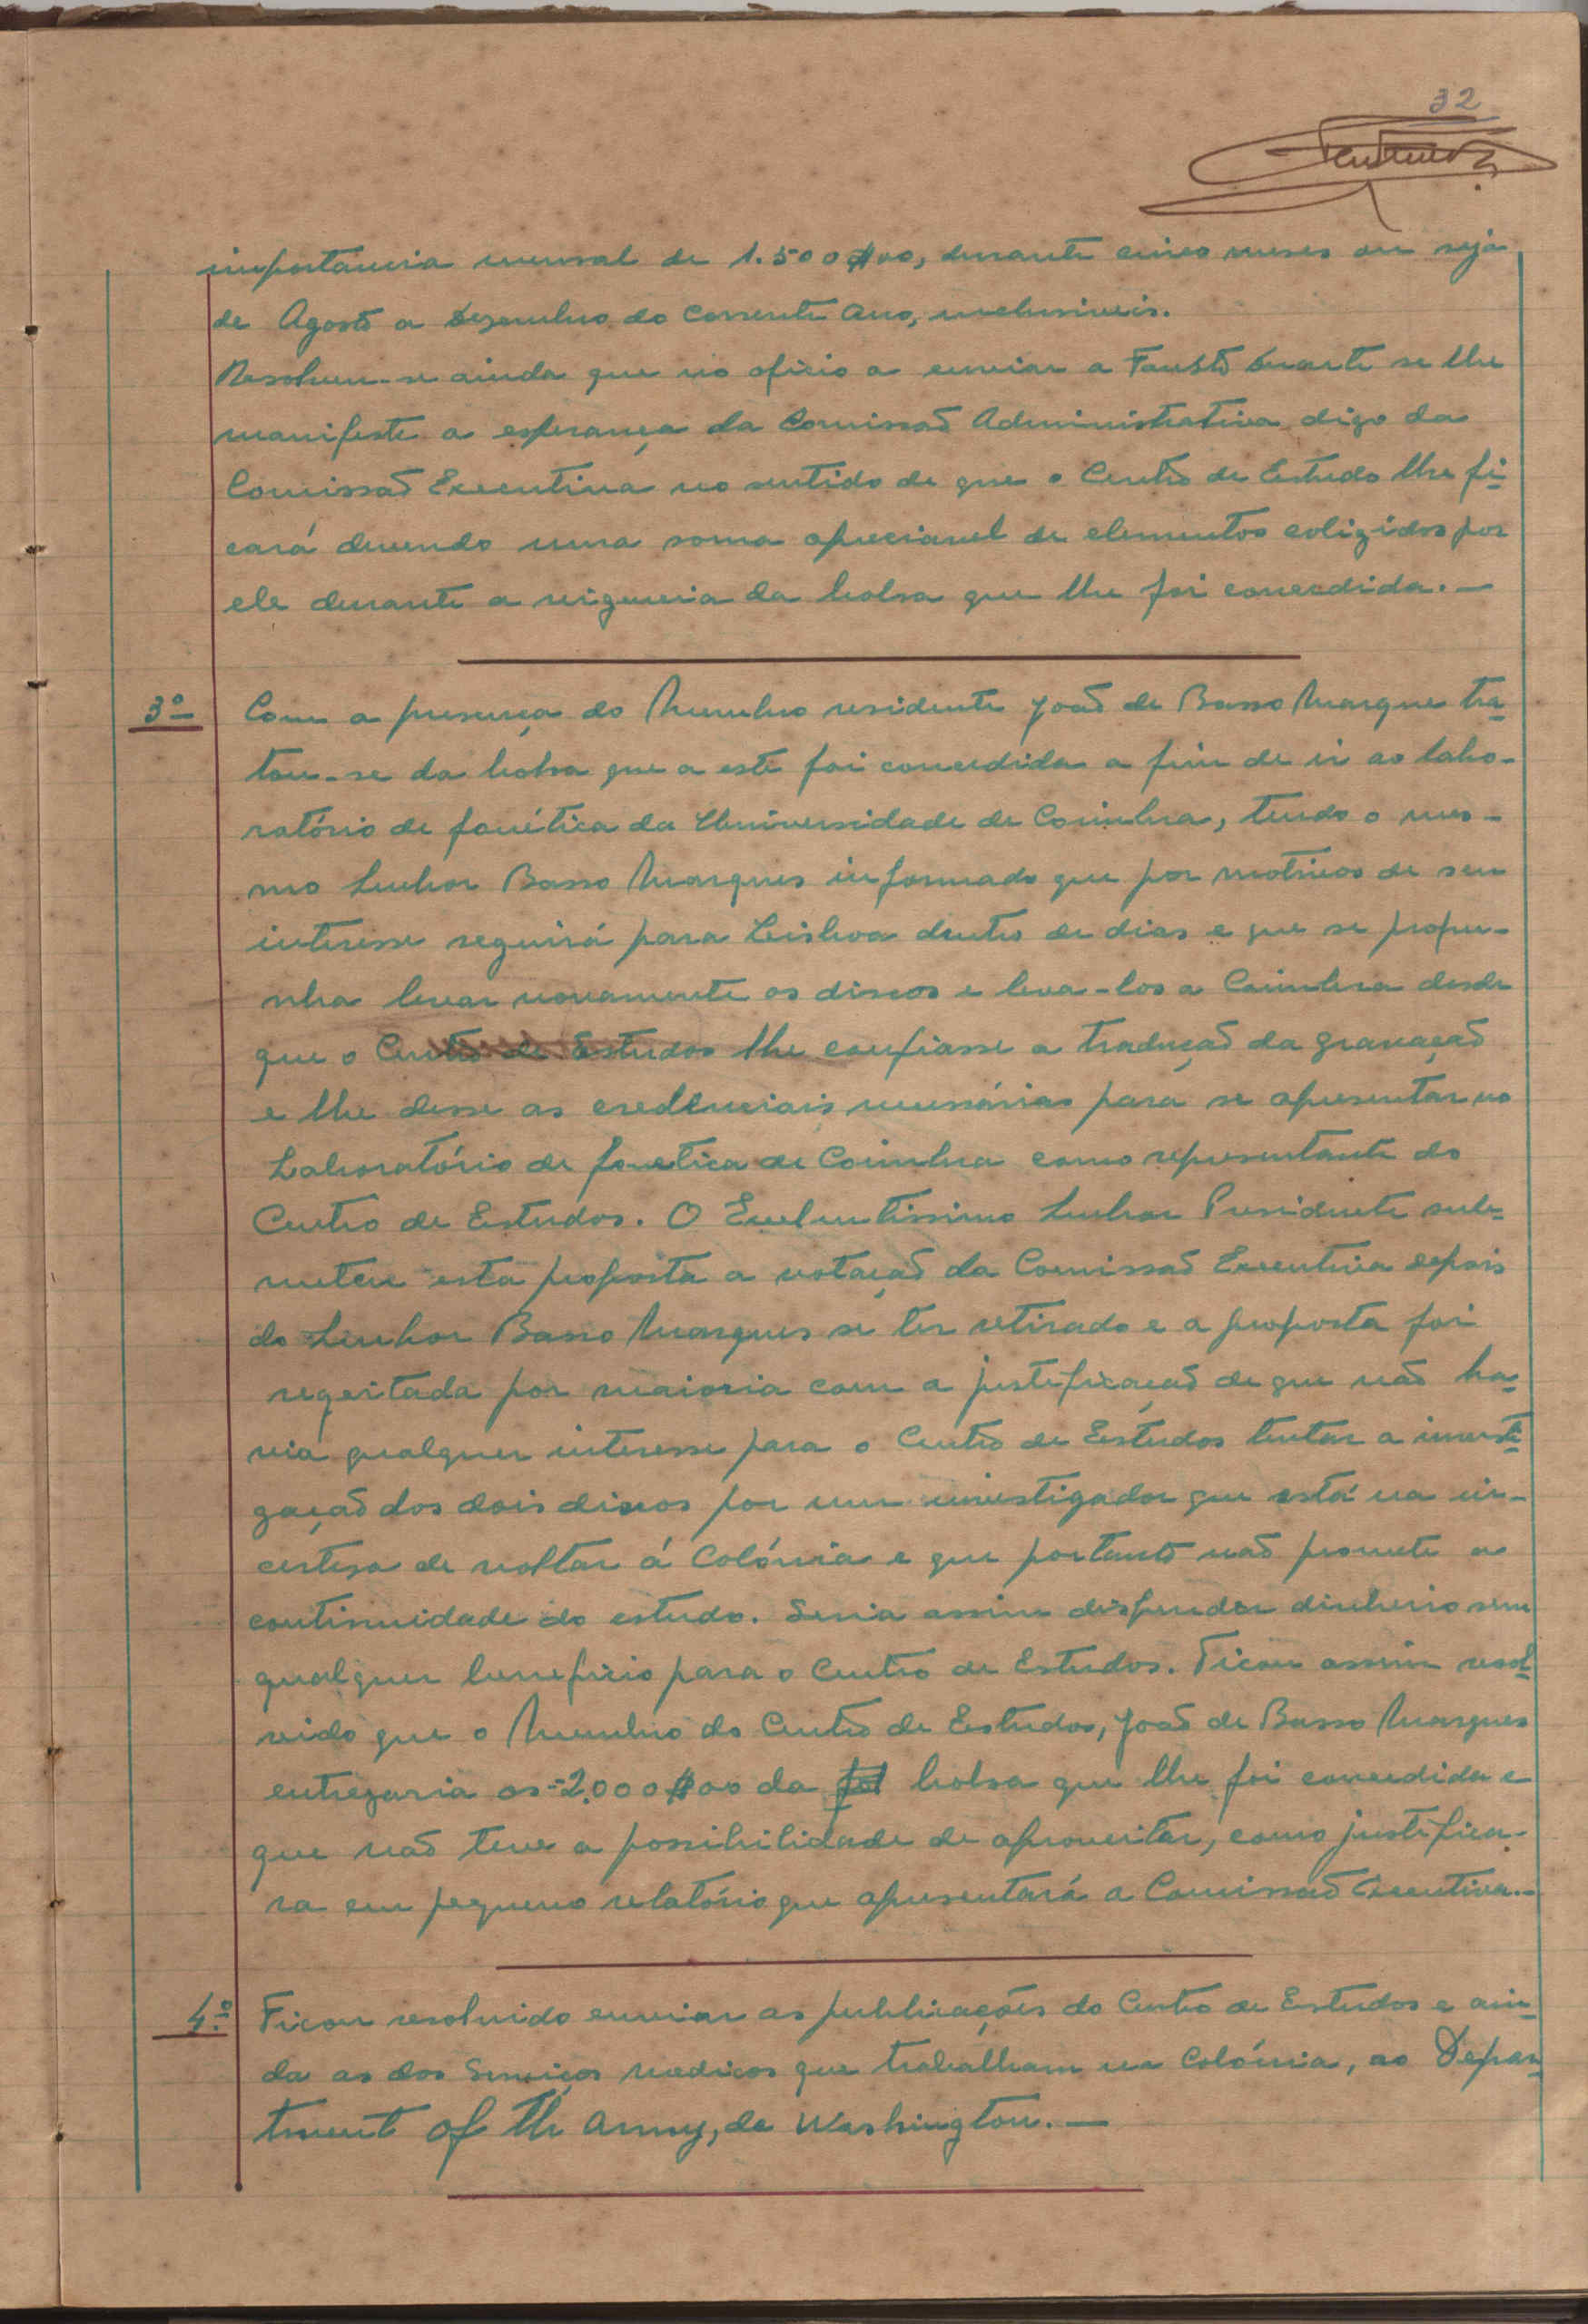 32
importancia mensal de 1.500$00, durante cinco meses ou seja
de Agosto a Dezembro do corrente ano, inclusiveis.
Resolveu-se ainda que no oficio a enviar a Fausto Duarte se lhe
manifeste a esperança da Comissaõ Administrativa digo da
Comissaõ Executiva no sentido de que o Centro de Estudo lhe fi-
cará devendo uma soma apreciavel de elementos coligidos por
ele durante a vigencia da bolsa que lhe foi concedida. —
3º Com a presença do Membro residente Joaõ de Basso Marque tra-
tou-se da bolsa que a este foi concedida a fim de ir ao labo-
ratório de fonética da Universidade de Coimbra, tendo o mes-
mo Senhor Basso Marques informado que por motivos de seu
interesse seguirá para Lisboa dentro de dias e que se propu-
nha levar novamente os discos e leva-los a Coimbra desde
que o Centro de Estudos lhe confiasse a traduçaõ da gravaçaõ
e lhe desse as credenciais necessárias para se apresentar no
Laboratório de fonetica de Coimbra como representante do
Centro de Estudos. O Excelentissimo Senhor Presidente sub-
meteu esta proposta a votaçaõ da Comissaõ Executiva depois
do Senhor Basso Marques se ter retirado e a proposta foi
regeitada por maioria com a justificaçaõ de que naõ ha-
via qualquer interesse para o Centro de Estudos tentar a investi-
gaçaõ dos dois discos por um investigador que está na in-
certesa de voltar á Colónia e que portanto naõ promete a
continuidade do estudo. Seria assim dispender dinheiro sem
qualquer beneficio para o Centro de Estudos. Ficou assim resol-
vido que o Membro do Centro de Estudos, Joaõ de Basso Marques
entregaria os 2.000$00 da bolsa que lhe foi concedida e
que naõ teve a possibilidade de aproveitar, como justifica-
ra em pequeno relatório que apresentará a Comissaõ Executiva. —
4.º Ficou resolvido enviar as publicações do Centro de Estudos e ain-
da as dos Serviços medicos que trabalham na Colónia, ao Depar-
tment of the Army, de Washington. —